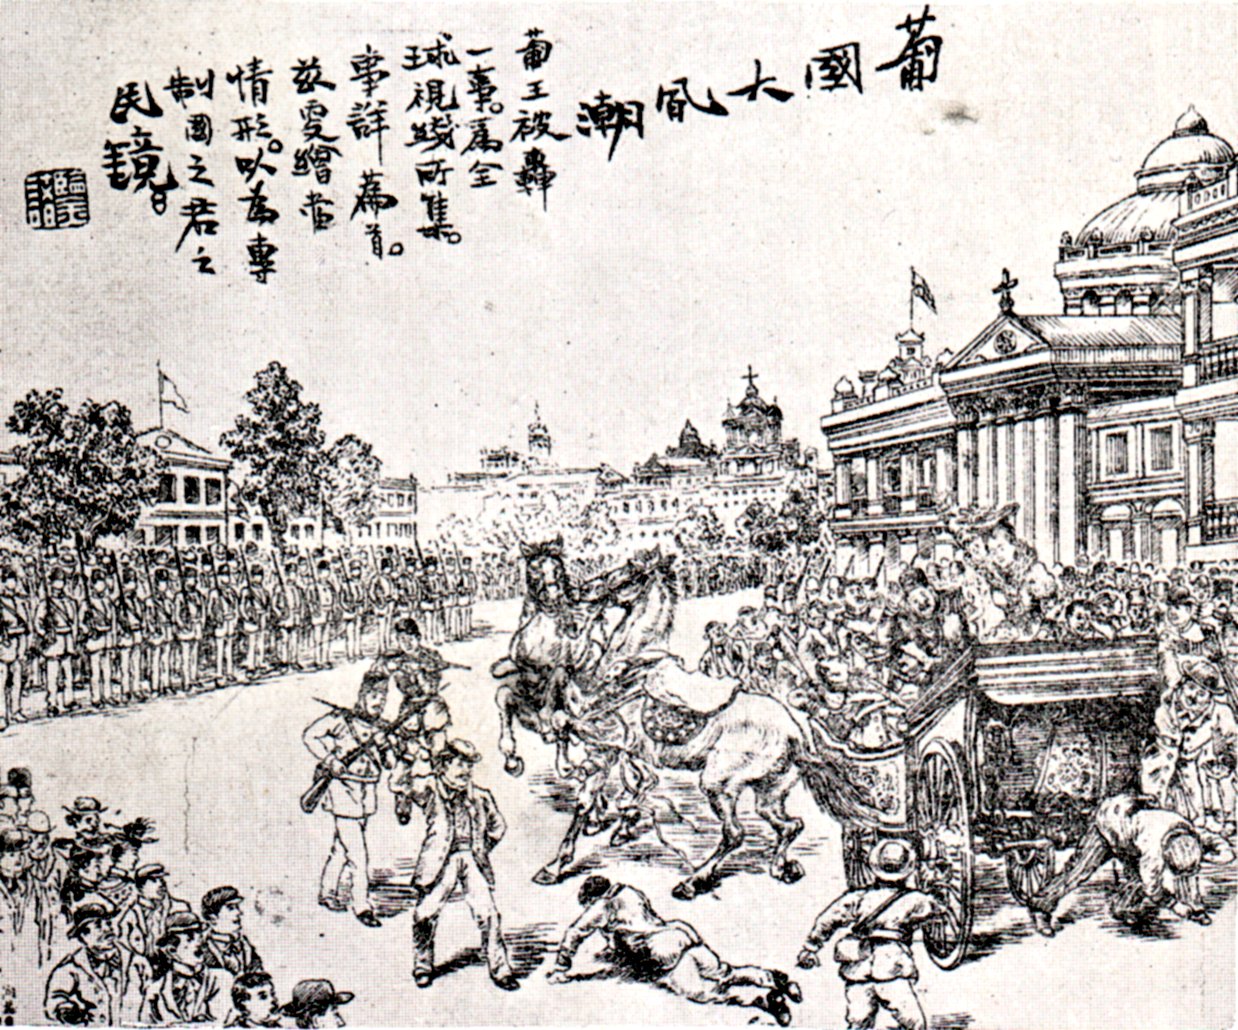 葡國大風潮
葡王被轟
一事。為全
球視綫所集。
事詳篇首。
茲更繪當
情形。以為專
制國之君之
民鏡 日